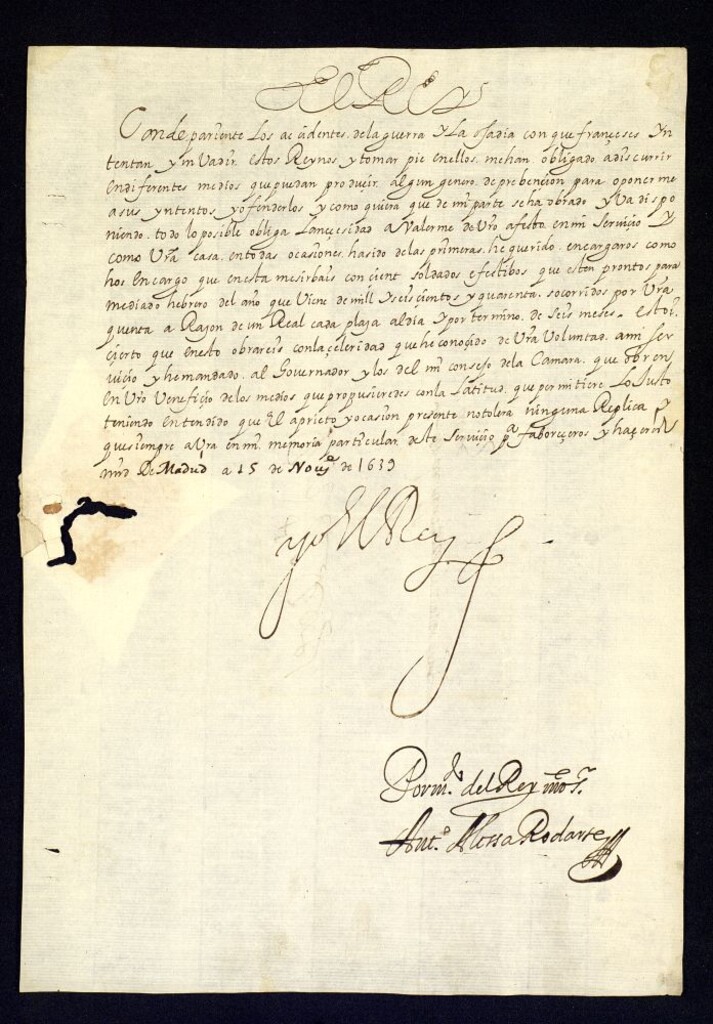 El Rey
Conde pariente Los acidentes de la guerra y La osadia con que franceses Yn
tentan ynVadir estos Reynos y tomar pie en ellos me han obligado a discurrir
en diferentes medios que puedan produçir algun genero de prebencion para oponerme
a sus yntentos y ofenderlos y como quiera que de mi parte se ha obrado y Va dispo
niendo todo lo posible obliga La neçesidad a Valerme de Vro afecto en mi Serviçio Y
como Vra casa en todas ocasiones ha sido de las primeras he querido encargaros como
hos encargo que en esta me sirbais con cient soldados efectibos que esten prontos para
mediado hebrero del año que Viene de mill y seiscientos y quarenta socorridos por Vra
quenta a Raçon de un Real cada plaça al dia y por termino de seis meses. Estoi
cierto que en esto obrareis con la çeleridad que he conoçido de Vra Voluntad a mi ser
viçio y he mandado al Governador y los del mi consejo de la Camara que obren
en Vro Venefiçio de los medios que propusieredes con la Latitud que permitiere Lo Justo
teniendo entendido que El aprieto y ocasion presente no tolera ninguna Replica y
que siempre aVra en mi memoria particular de este Serviçio pa faboreçeros y haçeros
mrd De Madrid a 15 de Noue de 1639
yo El Rey
Por mdo del Rey nro sr
Anto Alossa Rodarte